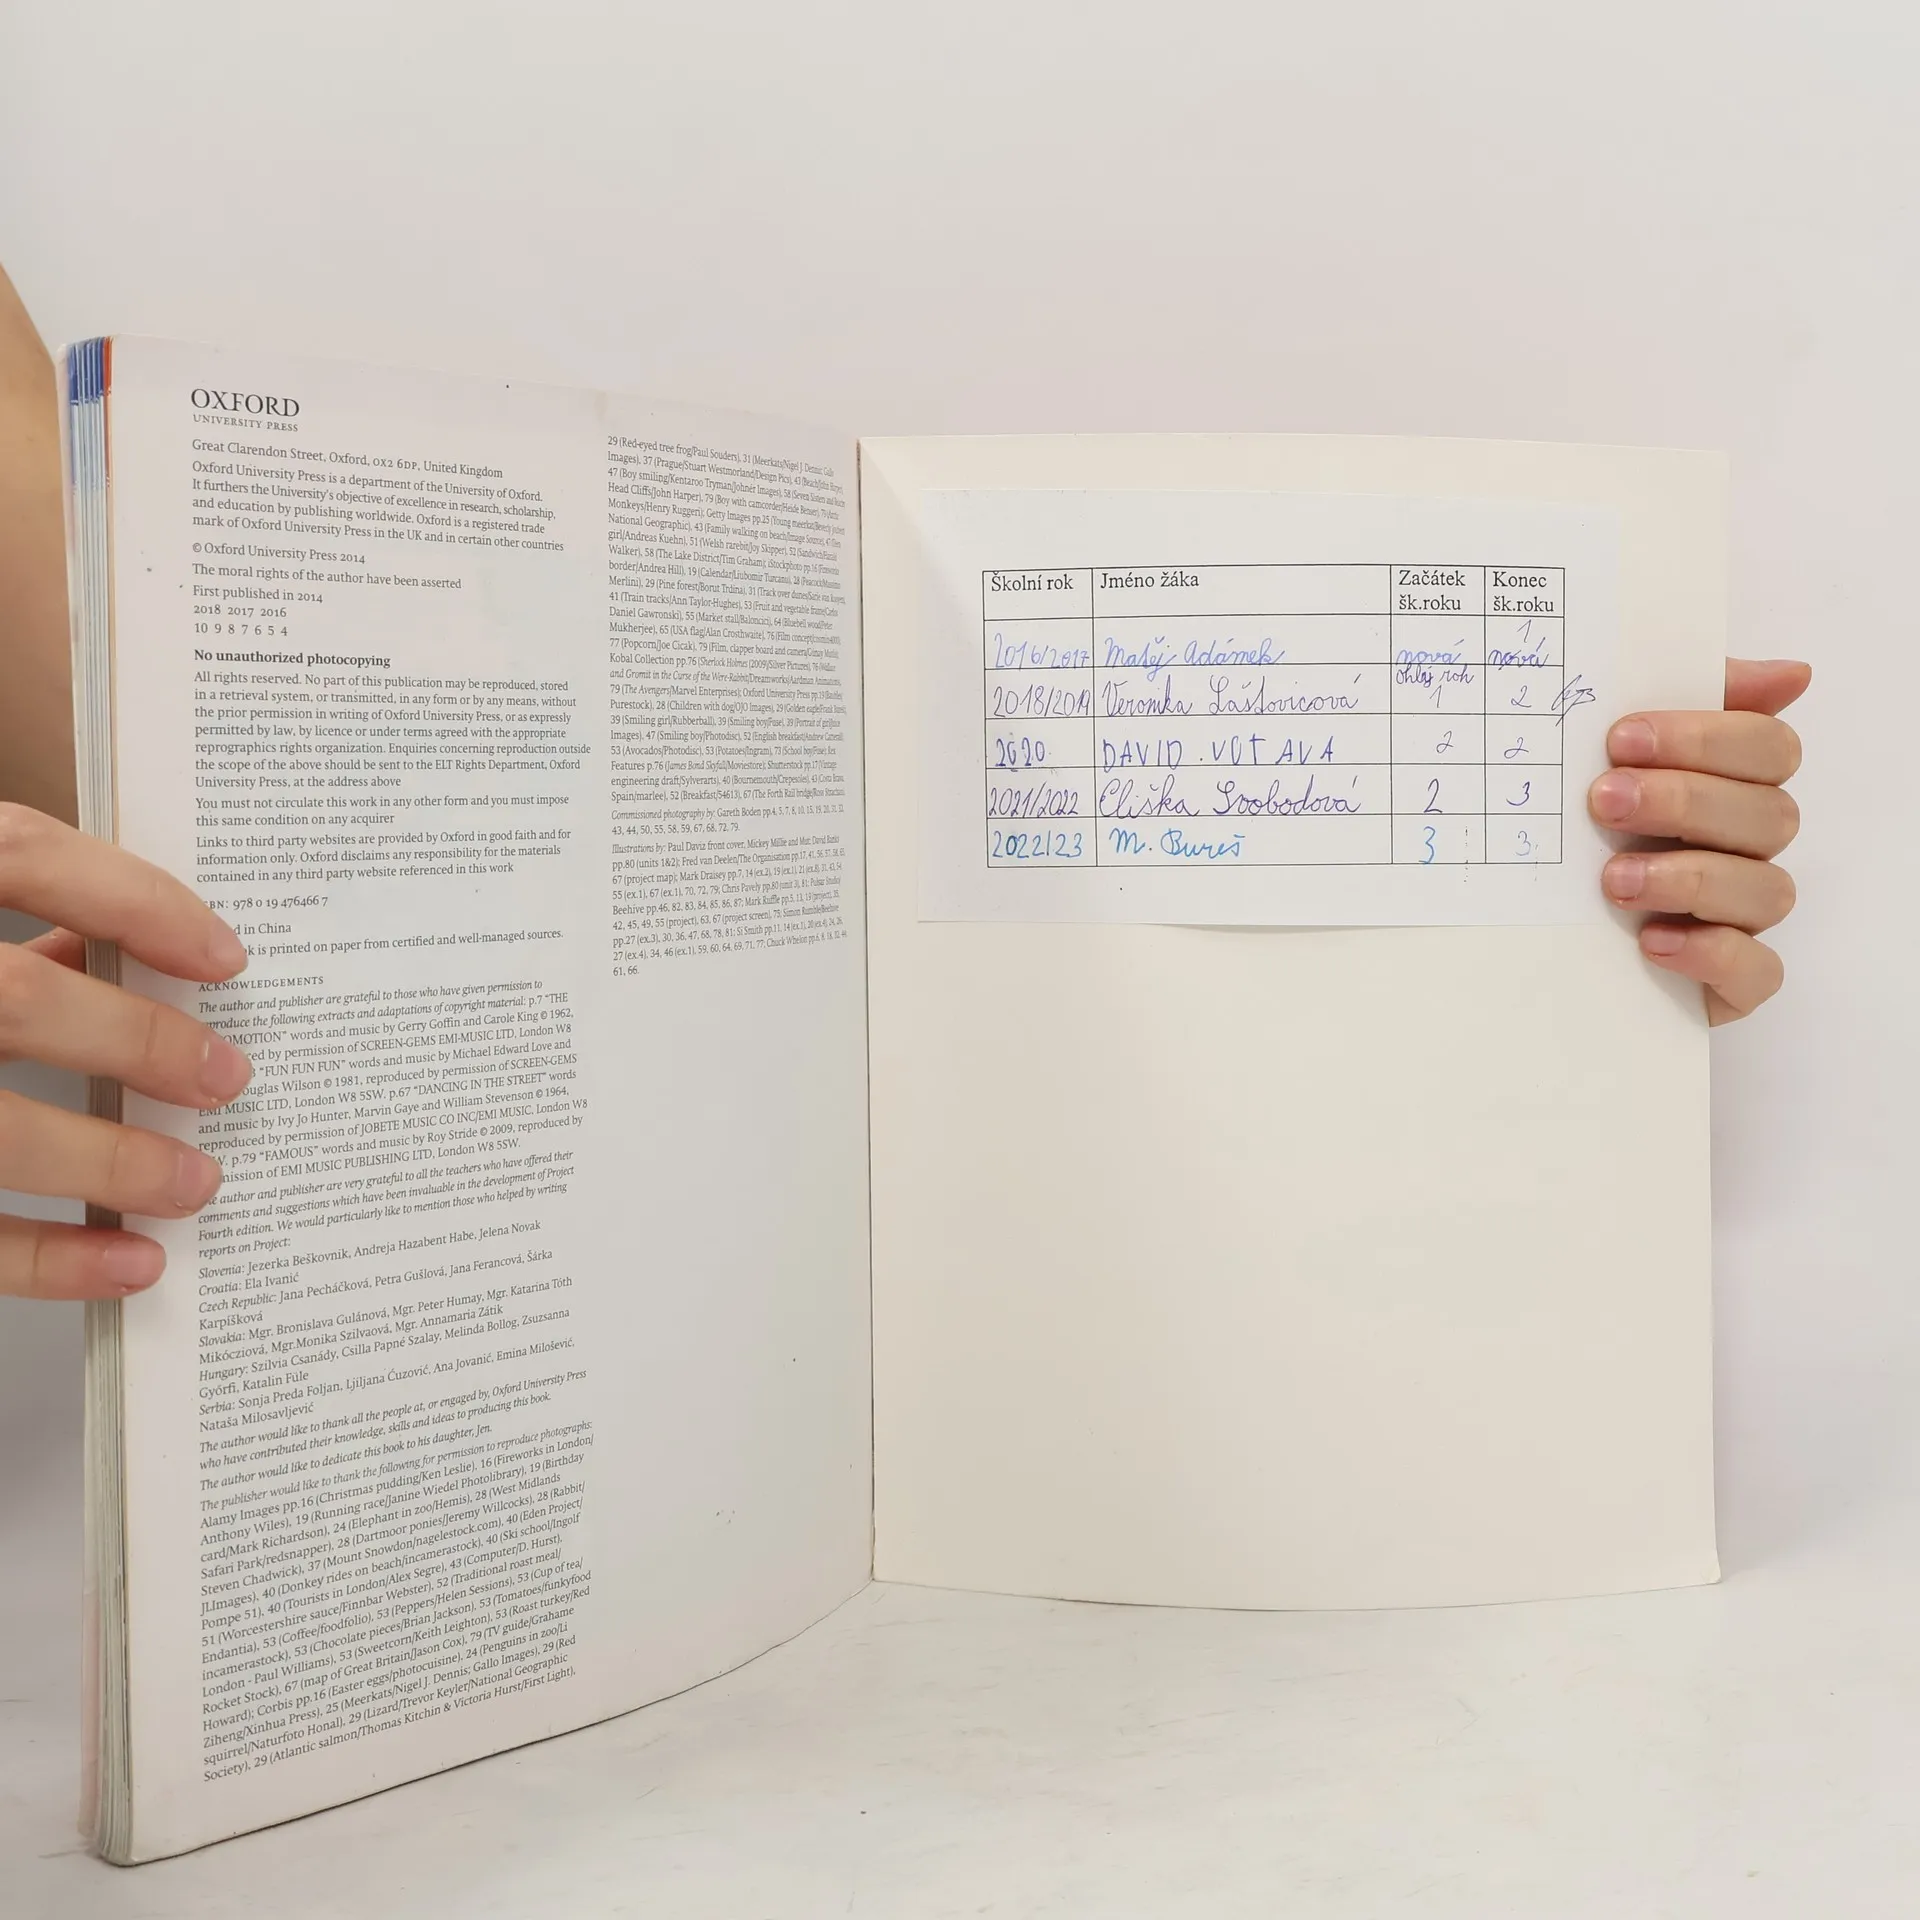 OXFORD
UNIVERSITY PRESS
Great Clarendon Street, Oxford, OX2 6DP, United Kingdom
Oxford University Press is a department of the University of Oxford.
It furthers the University's objective of excellence in research, scholarship,
and education by publishing worldwide. Oxford is a registered trade
mark of Oxford University Press in the UK and in certain other countries
© Oxford University Press 2014
The moral rights of the author have been asserted
First published in 2014
2018 2017 2016
10 9 8 7 6 5 4
No unauthorized photocopying
All rights reserved. No part of this publication may be reproduced, stored
in a retrieval system, or transmitted, in any form or by any means, without
the prior permission in writing of Oxford University Press, or as expressly
permitted by law, by licence or under terms agreed with the appropriate
reprographics rights organization. Enquiries concerning reproduction outside
the scope of the above should be sent to the ELT Rights Department, Oxford
University Press, at the address above
You must not circulate this work in any other form and you must impose
this same condition on any acquirer
Links to third party websites are provided by Oxford in good faith and for
information only. Oxford disclaims any responsibility for the materials
contained in any third party website referenced in this work
BN: 978 0 19 476466 7
d in China
k is printed on paper from certified and well-managed sources.
ACKNOWLEDGEMENTS
The author and publisher are grateful to those who have given permission to
produce the following extracts and adaptations of copyright material: p.7 "THE
OMOTION" words and music by Gerry Goffin and Carole King © 1962,
ced by permission of SCREEN-GEMS EMI-MUSIC LTD, London W8
"FUN FUN FUN" words and music by Michael Edward Love and
ouglas Wilson © 1981, reproduced by permission of SCREEN-GEMS
EMI MUSIC LTD, London W8 5SW. p.67 "DANCING IN THE STREET" words
and music by Ivy Jo Hunter, Marvin Gaye and William Stevenson © 1964,
reproduced by permission of JOBETE MUSIC CO INC/EMI MUSIC, London W8
W. p.79 "FAMOUS" words and music by Roy Stride © 2009, reproduced by
mission of EMI MUSIC PUBLISHING LTD, London W8 5SW.
e author and publisher are very grateful to all the teachers who have offered their
comments and suggestions which have been invaluable in the development of Project
Fourth edition. We would particularly like to mention those who helped by writing
reports on Project:
Slovenia: Jezerka Beškovnik, Andreja Hazabent Habe, Jelena Novak
Croatia: Ela Ivanić
Czech Republic: Jana Pecháčková, Petra Gušlová, Jana Ferancová, Šárka
Karpíšková
Slovakia: Mgr. Bronislava Gulánová, Mgr. Peter Humay, Mgr. Katarina Tóth
Mikócziová, Mgr.Monika Szilvaová, Mgr. Annamaria Zátik
Hungary: Szilvia Csanády, Csilla Papné Szalay, Melinda Bollog, Zsuzsanna
Győrfi, Katalin Füle
Serbia: Sonja Preda Foljan, Ljiljana Ćuzović, Ana Jovanić, Emina Milošević,
Nataša Milosavljević
The author would like to thank all the people at, or engaged by, Oxford University Press
who have contributed their knowledge, skills and ideas to producing this book.
The author would like to dedicate this book to his daughter, Jen.
The publisher would like to thank the following for permission to reproduce photographs:
Alamy Images pp.16 (Christmas pudding/Ken Leslie), 16 (Fireworks in London/
Anthony Wiles), 19 (Running race/Janine Wiedel Photolibrary), 19 (Birthday
card/Mark Richardson), 24 (Elephant in zoo/Hemis), 28 (West Midlands
Safari Park/redsnapper), 28 (Dartmoor ponies/Jeremy Willcocks), 28 (Rabbit/
Steven Chadwick), 37 (Mount Snowdon/nagelestock.com), 40 (Eden Project/
JLImages), 40 (Donkey rides on beach/incamerastock), 40 (Ski school/Ingolf
Pompe 51), 40 (Tourists in London/Alex Segre), 43 (Computer/D. Hurst),
51 (Worcestershire sauce/Finnbar Webster), 52 (Traditional roast meal/
Endantia), 53 (Coffee/foodfolio), 53 (Peppers/Helen Sessions), 53 (Cup of tea/
incamerastock), 53 (Chocolate pieces/Brian Jackson), 53 (Tomatoes/funkyfood
London - Paul Williams), 53 (Sweetcorn/Keith Leighton), 53 (Roast turkey/Red
Rocket Stock), 67 (map of Great Britain/Jason Cox), 79 (TV guide/Grahame
Howard); Corbis pp.16 (Easter eggs/photocuisine), 24 (Penguins in zoo/Li
Ziheng/Xinhua Press), 25 (Meerkats/Nigel J. Dennis; Gallo Images), 29 (Red
squirrel/Naturfoto Honal), 29 (Lizard/Trevor Keyler/National Geographic
Society), 29 (Atlantic salmon/Thomas Kitchin & Victoria Hurst/First Light),
29 (Red-eyed tree frog/Paul Souders), 31 (Meerkats/Nigel J. Dennis; Gallo
Images), 37 (Prague/Stuart Westmorland/Design Pics), 43 (Beach/John Harper),
47 (Boy smiling/Kentaroo Tryman/Johnér Images), 58 (Seven Sisters and
Head Cliffs/John Harper), 79 (Boy with camcorder/Heide Benser), 79
Monkeys/Henry Ruggeri); Getty Images pp.25 (Young meerkat/Beverly Joubert
National Geographic), 43 (Family walking on beach/Image Source), 47
girl/Andreas Kuehn), 51 (Welsh rarebit/Joy Skipper), 52
Walker), 58 (The Lake District/Tim Graham); iStockphoto pp.16
border/Andrea Hill), 19 (Calendar/Liubomir Turcanu), 28
Merlini), 29 (Pine forest/Borut Trdina), 31 (Track over dunes/
41 (Train tracks/Ann Taylor-Hughes), 53 (Fruit and vegetable frame/
Daniel Gawronski), 55 (Market stall/Baloncici), 64 (Bluebell wood/Peter
Mukherjee), 65 (USA flag/Alan Crosthwaite), 76 (Film concept/
77 (Popcorn/Joe Cicak), 79 (Film, clapper board and camera/
Kobal Collection pp.76 (Sherlock Holmes (2009)/Silver Pictures), 76 (Wallace
and Gromit in the Curse of the Were-Rabbit/Dreamworks/Aardman Animations),
79 (The Avengers/Marvel Enterprises); Oxford University Press pp.19
Purestock), 28 (Children with dog/OJO Images), 29 (Golden eagle/
39 (Smiling girl/Rubberball), 39 (Smiling boy/Fuse), 39 (Portrait of girl/
Images), 47 (Smiling boy/Photodisc), 52 (English breakfast/Andrew
53 (Avocados/Photodisc), 53 (Potatoes/Ingram), 73 (School boy/Fuse); Rex
Features p.76 (James Bond Skyfall/Moviestore); Shutterstock pp.17 (Vintage
engineering draft/Sylverarts), 40 (Bournemouth/Crepesoles), 43 (Costa Brava,
Spain/marlee), 52 (Breakfast/54613), 67 (The Forth Rail bridge/
Commissioned photography by: Gareth Boden pp.4, 5, 7, 8, 10, 15, 19, 20, 31, 32,
43, 44, 50, 55, 58, 59, 67, 68, 72, 79.
Illustrations by: Paul Daviz front cover, Mickey Millie and Mut; David Banks
pp.80 (units 1&2); Fred van Deelen/The Organisation pp.17, 41, 56, 57, 58,
67 (project map); Mark Draisey pp.7, 14 (ex.2), 19 (ex.1), 21
55 (ex.1), 67 (ex.1), 70, 72, 79; Chris Pavely pp.80 (unit 3), 81; Pulsar Studio/
Beehive pp.46, 82, 83, 84, 85, 86, 87; Mark Ruffle pp.5, 13, 19 (project),
42, 45, 49, 55 (project), 63, 67 (project screen), 75; Simon Rumble/Beehive
pp.27 (ex.3), 30, 36, 47, 68, 78, 81; Si Smith pp.11, 14 (ex.1), 20
27 (ex.4), 34, 46 (ex.1), 59, 60, 64, 69, 71, 77; Chuck Whelon pp.6, 8, 18, 32
61, 66.
Školní rok Jméno žáka Začátek šk.roku Konec šk.roku
2016/2017 Matěj Adámek nová 1 nová
2018/2019 Veronika Lášťovicová ohlý roh 1 2
2020 DAVID.VOTAVA 2 2
2021/2022 Eliška Svobodová 2 3
2022/23 M. Bureš 3 3